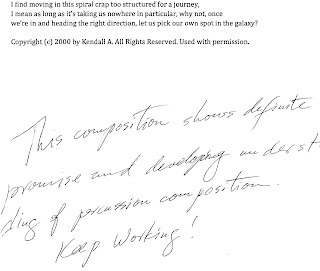 I find moving in this spiral crap too structured for a journey,
I mean as long as it's taking us nowhere in particular, why not, once
we're in and heading the right direction, let us pick our own spot in the galaxy?
Copyright (c) 2000 by Kendall A. All Rights Reserved. Used with permission.
This composition shows definite
promise and developing underst-
ding of percussion composition.
Keep Working!